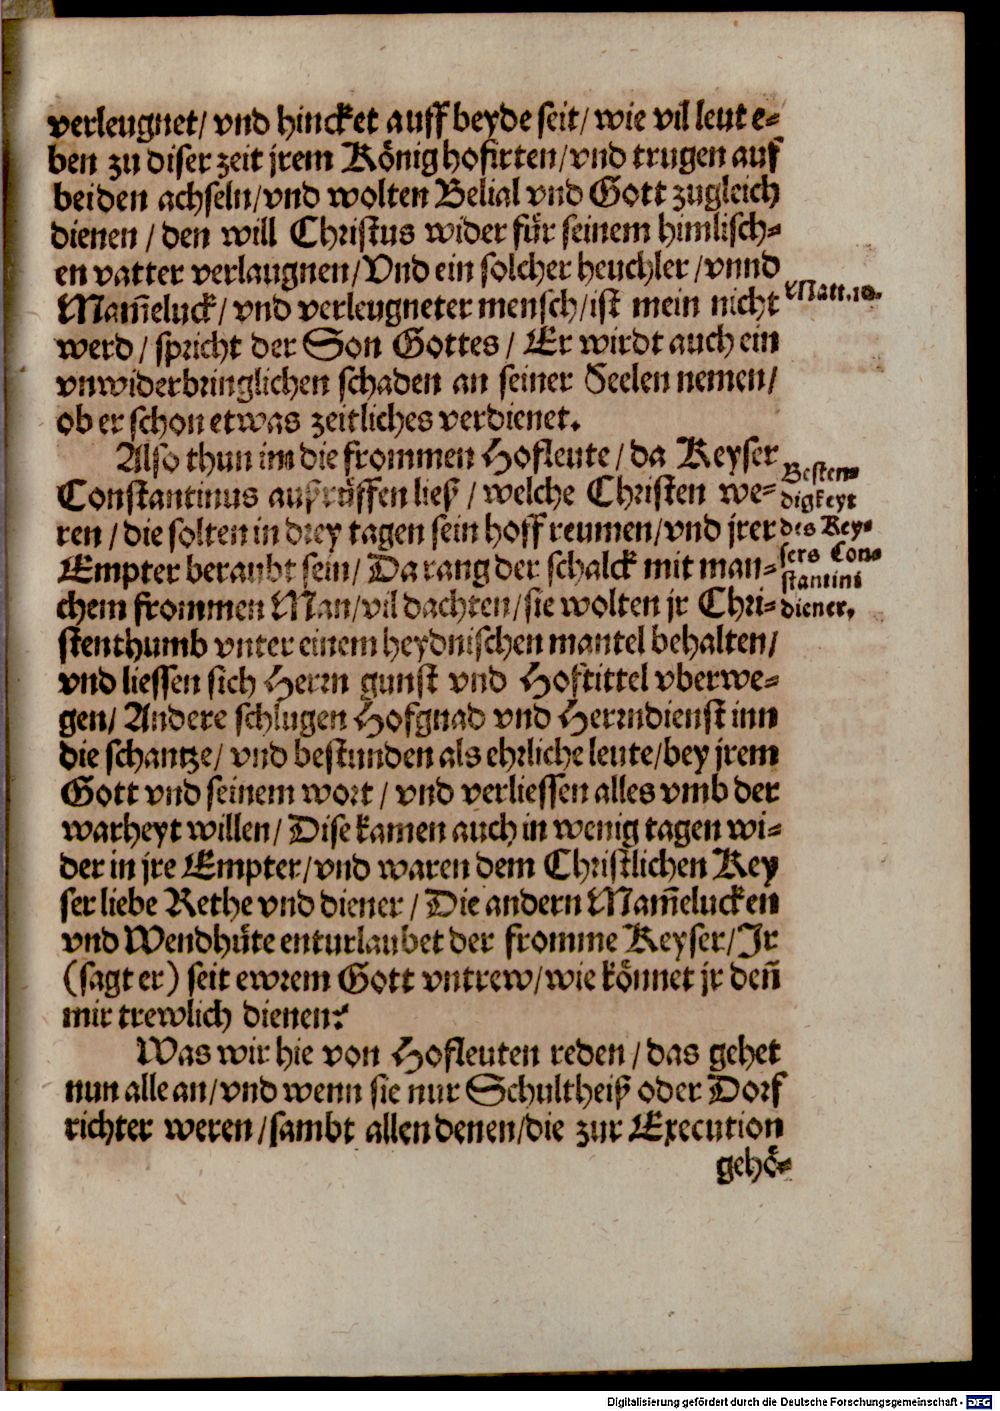 verleugnet/ vnd hincket auff beyde seit/ wie vil leut e-
ben zu diser zeit jrem König hofirten/vnd trugen auf
beiden achseln/vnd wolten Belial vnd Gott zugleich
dienen / den will Christus wider für seinem himlisch-
en vatter verlaugnen/Vnd ein solcher heuchler / vnnd
Mam̃eluck/ vnd verleugneter mensch/ist mein nicht
Matt. 10.
werd / spricht der Son Gottes / Er wirdt auch ein
vnwiderbringlichen schaden an seiner Seelen nemen/
ob er schon etwas zeitliches verdienet.
Also thun im die frommen Hofleute / da Keyser
Constantinus außrüffen ließ / welche Christen we-
ren / die solten in drey tagen sein hoff reumen/vnd jrer
Empter beraubt sein/ Da rang der schalck mit man-
chem frommen Man/vil dachten/sie wolten jr Chri-
Besten-
digkeyt
des Key-
sers Con-
stantini
diener.
stenthumb vnter einem heydnischen mantel behalten/
vnd liessen sich Herrn gunst vnd Hoftittel vberwe-
gen/ Andere schlugen Hofgnad vnd Herrndienst inn
die schantze/ vnd bestunden als ehrliche leute/bey jrem
Gott vnd seinem wort / vnd verliessen alles vmb der
warheyt willen/ Dise kamen auch in wenig tagen wi-
der in jre Empter/vnd waren dem Christlichen Key
ser liebe Rethe vnd diener / Die andern Mam̃elucken
vnd Wendhüte enturlaubet der fromme Keyser/Jr
(sagt er) seit ewrem Gott vntrew/wie könnet jr deñ
mir trewlich dienen?
Was wir hie von Hofleuten reden / das gehet
nun alle an/vnd wenn sie nur Schultheiß oder Dorf
richter weren /sambt allen denen/die zur Execution
gehö-
Digitalisierung gefördert durch die Deutsche Forschungsgemeinschaft - DFG